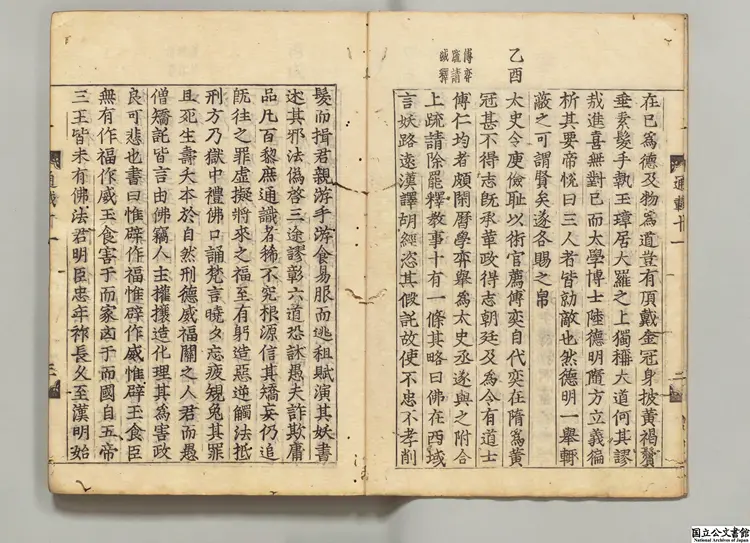 乙酉
傅奕
疏請
滅釋
在已爲德及物爲道豈有頂戴金冠身披黃褐鬢
垂素髮手執玉璋居大羅之上獨稱大道何其謬
哉進喜無對已而太學博士陸德明隨方立義徧
析其要帝悅曰三人者皆勍敵也然德明一舉輒
蔽之可謂賢矣遂各賜之帛
太史令庾儉恥以術官薦傅奕自代奕在隋爲黃
冠甚不得志旣承革政得志朝廷及爲令有道士
傅仁均者頗閑曆學奕舉爲太史丞遂與之附合
上疏請除罷釋教事十有一條其略曰佛在西域
言妖路遠漢譯胡經恣其假託故使不忠不孝削
通載十一
二
髮而揖君親游手游食易服而逃租賦演其妖書
述其邪法偽啓三途謬彰六道恐訹愚夫詐欺庸
品凡百黎庶通識者稀不究根源信其矯妄仍追
旣往之罪虛擬將來之福至有躬造惡逆觸法抵
刑方乃獄中禮佛口誦梵言曉夕忘疲規免其罪
且死生壽夭本於自然刑德威福關之人君而愚
僧矯託皆言由佛竊人主權攘造化理其爲害政
良可悲也書曰惟辟作福惟辟作威惟辟玉食臣
無有作福作威玉食害于而家凶于而國自五帝
三王皆未有佛法君明臣忠年祚長久至漢明始
通載十一
三
国立公文書館
National Archives of Japan